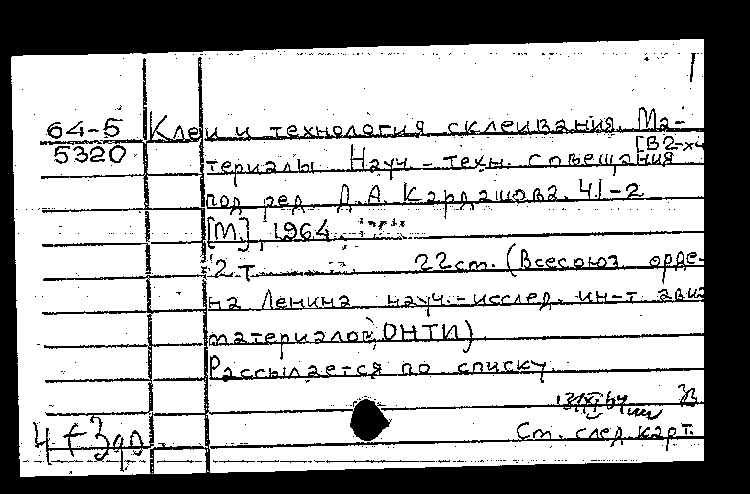 64-5 Клеи и технология склеивания. Ма-
5320 [В 2-х ч
териалы Науч.-техн. совещания
под ред. Д.А. Кардашова. Ч1-2
[М.], 1964.
2 т. 22 см. (Всесоюз. орде-
на Ленина науч.-исслед. ин-т авиа
материалов, ОНТИ)
Рассылается по списку.
См. след. карт.